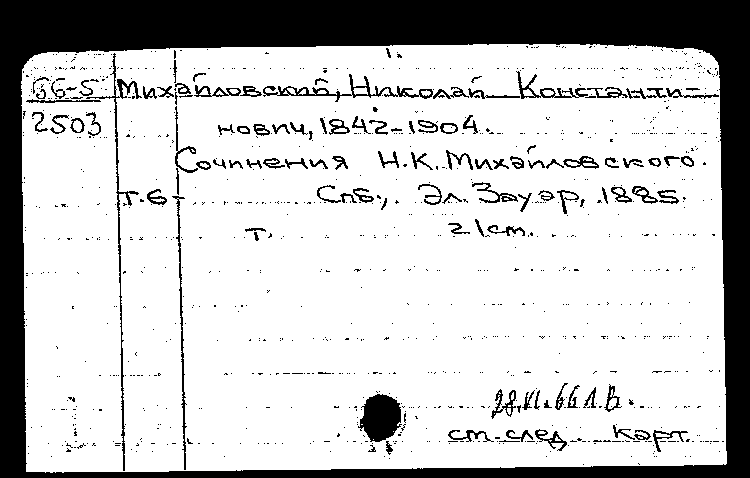 1.
66-5 Михайловский, Николай Константи-
2503 нович, 1842-1904.
Сочинения Н.К. Михайловского.
т.6- Спб., Эл. Зауэр, 1885.
т. 21cm.
28.VI.66 Л.В.
см. след. карт.